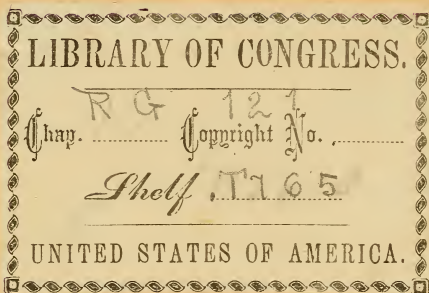 LIBRARY OF CONGRESS.
RG 121
Chap. .......... Copyright No. ..........
Shelf .T765
UNITED STATES OF AMERICA.